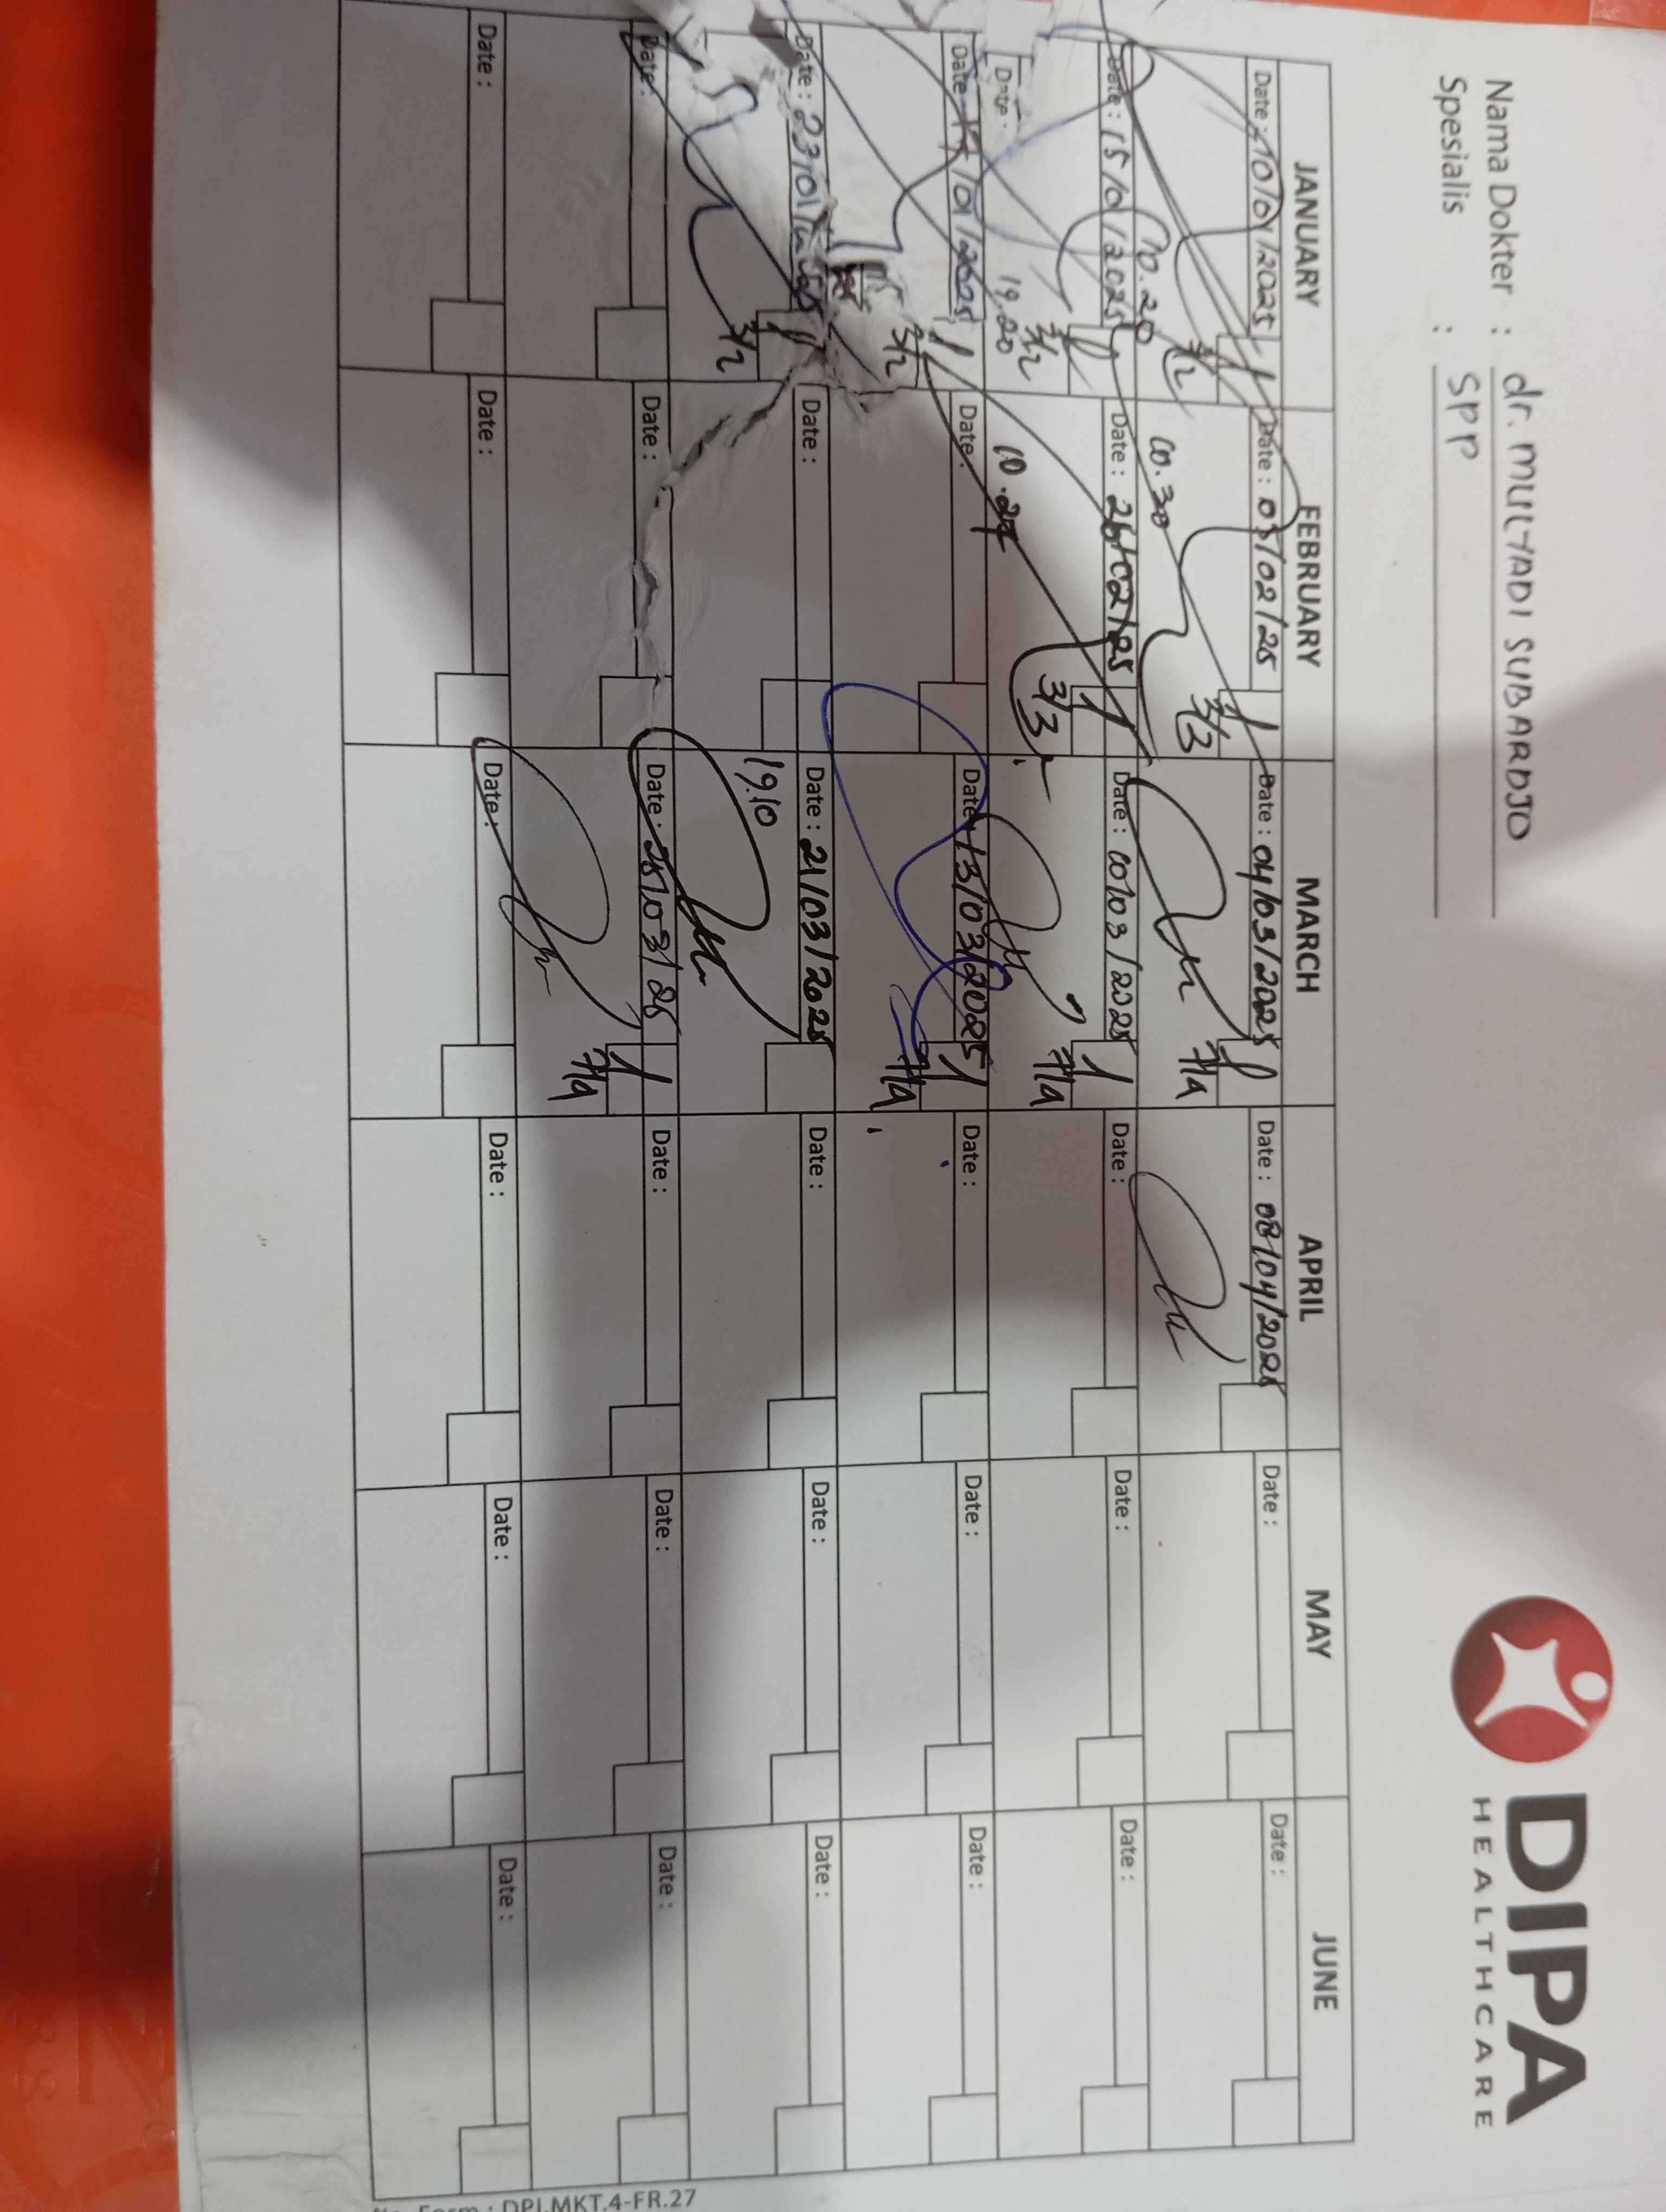 Nama Dokter : dr. MULYADI SUBARDJO
Spesialis : SPP
DIPA
HEALTHCARE
JANUARY FEBRUARY MARCH APRIL MAY JUNE
Date : 10/01/2025 Date : 03/02/25 Date : 04/03/2025 Date : 08/04/2025 Date : Date :
3/2 3/3 7/4
10.20 10.30
Date : 15/01/2025 Date : 26/02/25 Date : 10/03/2025 Date : Date : Date :
3/2 3/3 7/4
Date :
19.20 10.27
Date : /01/2025 Date : Date : 13/03/2025 Date : Date : Date :
3/2 7/4
Date : 23/01/ Date : Date : 21/03/2025 Date : Date : Date :
3/2 19.10
Date : Date : Date : 25/03/25 Date : Date : Date :
7/4
Date : Date : Date : Date : Date : Date :
No. Form : DPI.MKT.4-FR.27